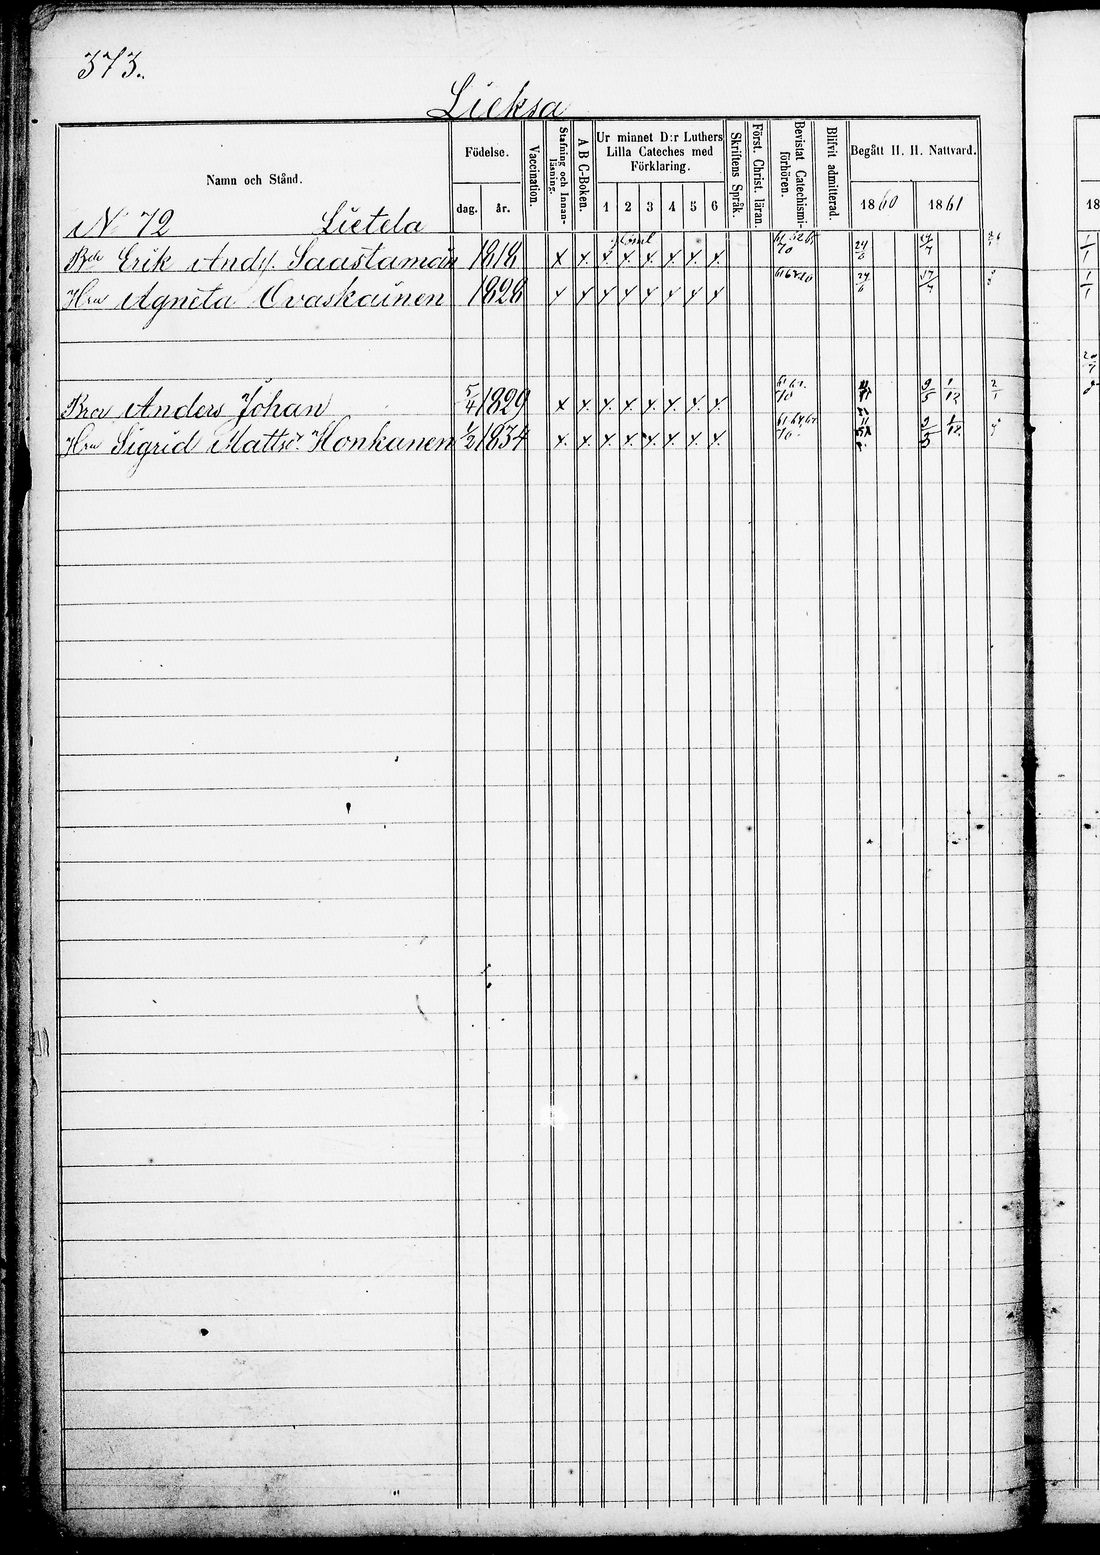 373.
Lieksa
Namn och Stånd. Födelse. dag. år. Vaccination. Stafning och Innanläsning. A B C-Boken. Ur minnet D:r Luthers Lilla Cateches med Förklaring. 1 2 3 4 5 6 Skriftens Språk. Först. Christ. läran. Bevistat Catechismiförhören. Blifvit admitterad. Begått H. H. Nattvard. 1860 1861 18
N 72 Lietela
Erik And. Saastamoin 1818 x x x x x x x x 70 24/6
Hru Agneta Ovaskainen 1828 x x x x x x x x 24/6 17/4
Bror Anders Johan 5/4 1829 x x x x x x x x 61 70 9/5 1/12 2/1
Hru Sigrid Mattsd. Honkanen 1/2 1834 x x x x x x x x 70. 9/5 1/12